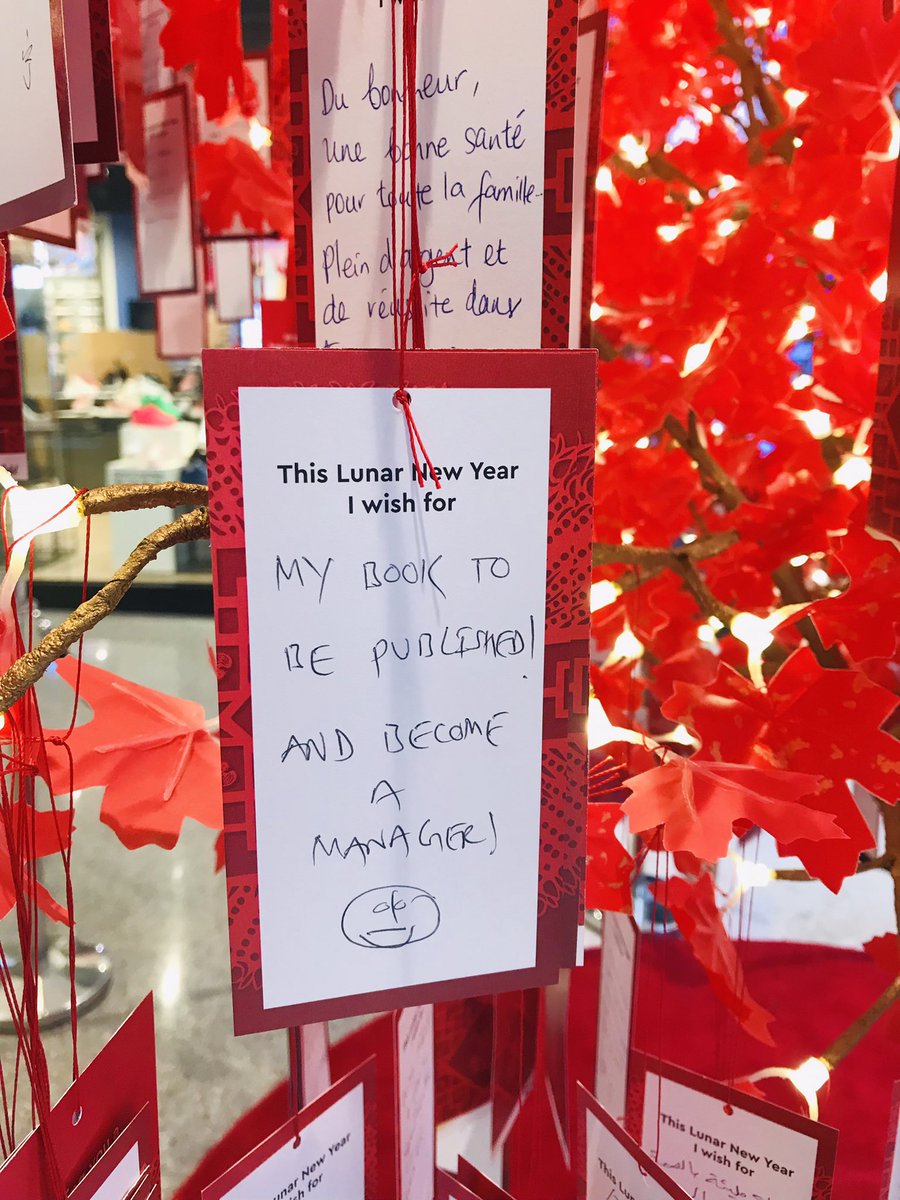 Du bonheur,
Une bonne santé
pour toute la famille...
Plein d'argent et
de réussite dans
This Lunar New Year
I wish for
MY BOOK TO
BE PUBLISHED!
AND BECOME
A
MANAGER!
This Lunar New Year
I wish for
This Lunar
I wish
This Lunar New Year
I wish for